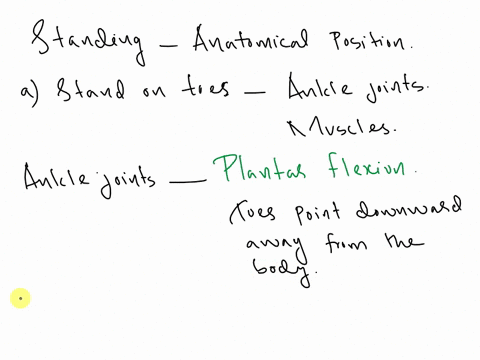 Standing - Anatomical Position.
a) Stand on toes - Ankle joints.
Muscles.
Ankle joints - Plantar flexion.
Toes point downward
away from the
body.